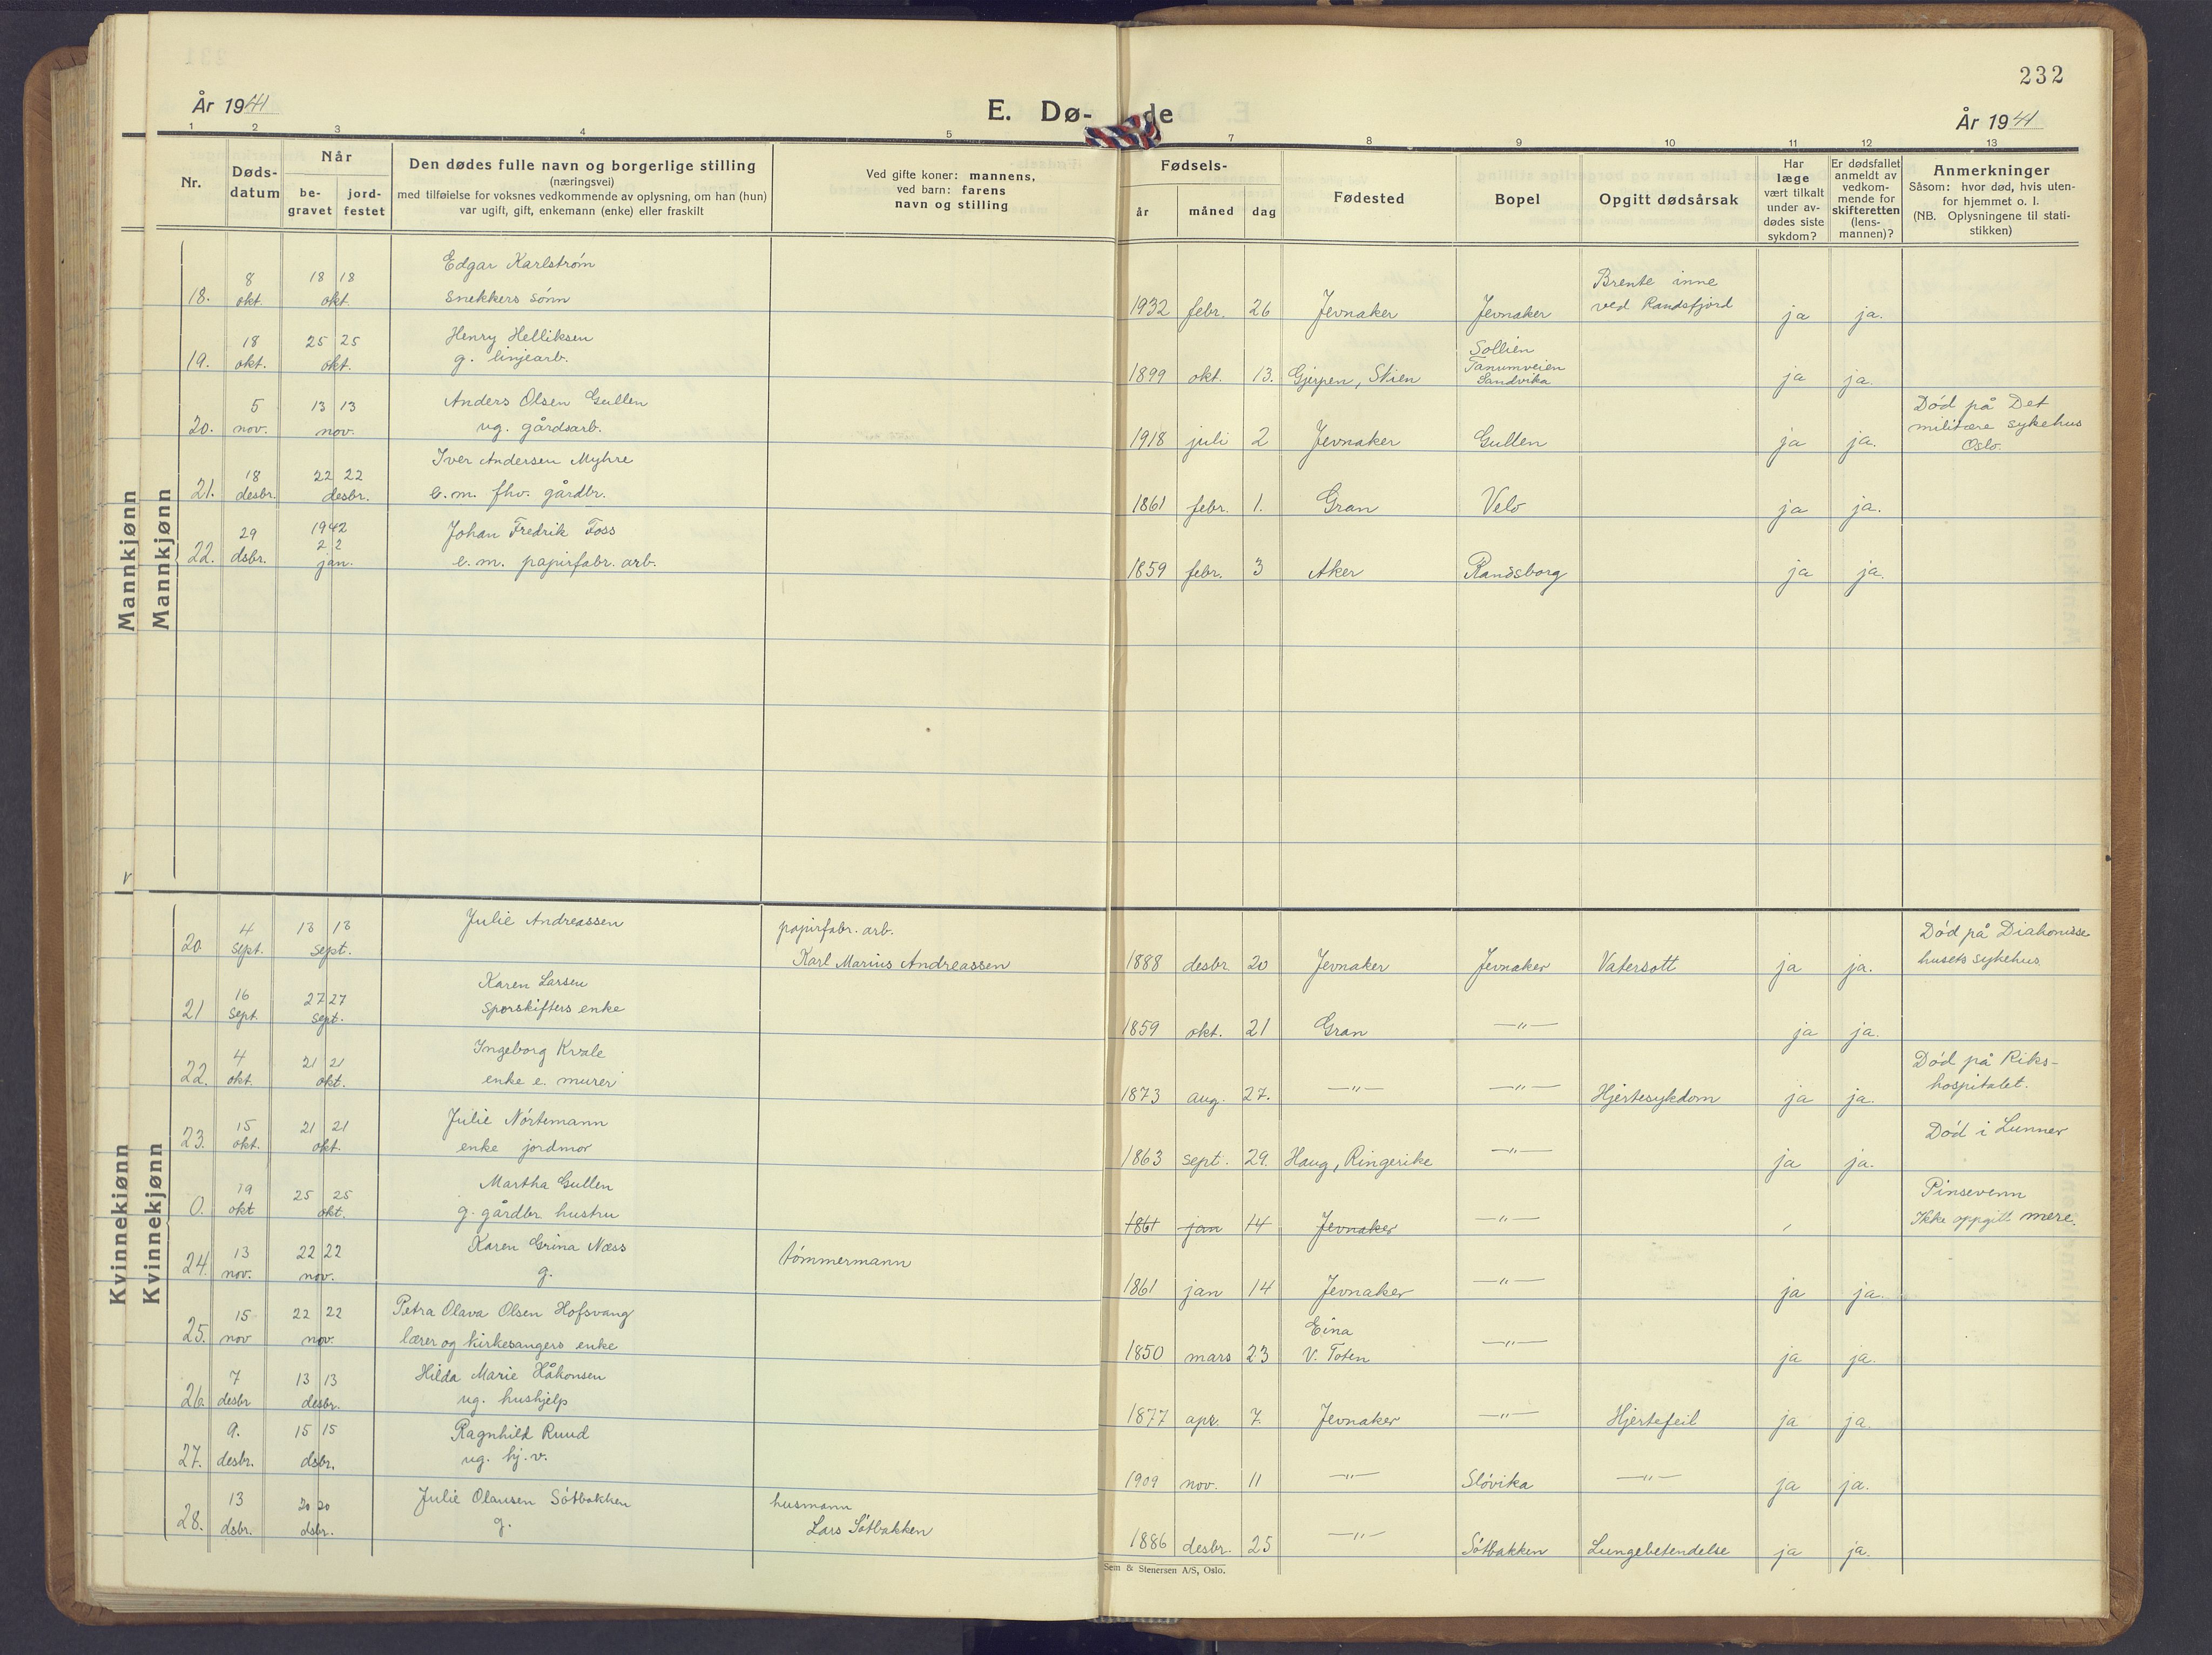 232
År 1941
E. Dø-
de
År 1941
1 2 3 4 5 7 8 9 10 11 12 13
Nr.
Døds-
datum
Når
be-
gravet
jord-
festet
Den dødes fulle navn og borgerlige stilling
(næringsvei)
med tilføielse for voksnes vedkommende av oplysning, om han (hun)
var ugift, gift, enkemann (enke) eller fraskilt
Ved gifte koner: mannens,
ved barn: farens
navn og stilling
Fødsels-
år måned dag
Fødested
Bopel
Opgitt dødsårsak
Har
læge
vært tilkalt
under av-
dødes siste
sykdom?
Er dødsfallet
anmeldt av
vedkom-
mende for
skifteretten
(lens-
mannen)?
Anmerkninger
Såsom: hvor død, hvis uten-
for hjemmet o. l.
(NB. Oplysningene til stati-
stikken)
Mannkjønn
Mannkjønn
8 18 18 Edgar Karlstrøm Brente inne
18. okt. okt. snekkers sønn 1932 febr. 26 Jevnaker Jevnaker ved Randsfjord ja ja.
18 25 25 Henry Helliksen Sollien
Tanumveien
19. okt. okt. g. linjearb. 1899 okt. 13. Gjerpen, Skien Sandvika ja ja.
5 13 13 Anders Olsen Gullen Død på Det
militære sykehus
20. nov. nov. ug. gårdsarb. 1918 juli 2 Jevnaker Gullen ja ja. Oslo.
18 22 22 Iver Andersen Myhre
21. desbr. desbr. e.m. fhv. gårdbr. 1861 febr. 1. Gran Velo ja ja.
29 1942
2 2 Johan Fredrik Foss
22. dsbr. jan. e.m. papirfabr. arb. 1859 febr. 3 Aker Randsborg ja ja.
Kvinnekjønn
Kvinnekjønn
4 13 13 Julie Andreassen papirfabr. arb. Død på Diakonisse
20. sept. sept. Karl Marius Andreassen 1888 desbr. 20 Jevnaker Jevnaker Vatersott ja ja. husets sykehus
16 27 27 Karen Larsen
21 sept. sept. sporskifters enke 1859 okt. 21 Gran —"— ja ja.
4 21 21 Ingeborg Kvale Død på Riks-
22. okt. okt. enke e. murer 1873 aug. 27. —"— —"— Hjertesykdom ja ja. hospitalet.
15 21 21 Julie Nørtemann Død i Lunner
23. okt. okt. enke jordmor 1863 sept. 29. Haug, Ringerike —"— ja ja.
19 25 25 Martha Gullen Pinsevenn
0. okt okt. g. gårdbr. hustru 1861 jan 14 Jevnaker —"— Ikke oppgitt mere.
13 22 22 Karen Grina Næss tømmermann
24. nov. nov. g. 1861 jan 14 Jevnaker —"— ja ja.
15 22 22 Petra Olava Olsen Hofsvang Eina
25. nov nov. lærer og kirkesangers enke 1850 mars 23 V. Toten —"— ja ja.
7 13 13 Hilda Marie Håkonsen
26. desbr desbr. ug. hushjelp 1877 apr. 7. Jevnaker —"— Hjertefeil ja ja.
9. 15 15 Ragnhild Ruud
27. desbr. dsbr. ug. hj.v. 1909 nov. 11 —"— Sløvika —"— ja ja.
13 20 20 Julie Olausen Søtbakken husmann
28. dsbr. dsbr. g. Lars Søtbakken 1886 desbr. 25 —"— Søtbakken Lungebetendelse ja ja.
Sem & Stenersen A/S, Oslo.